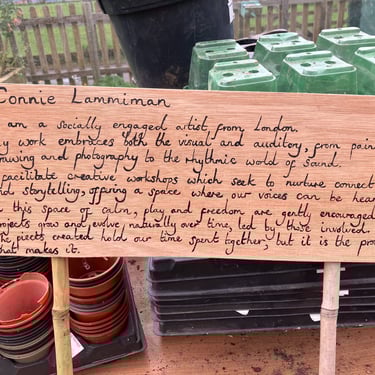 Connie Lammiman
am a socially engaged artist, from London.
work embraces both the visual and auditory, from pain
rawing and photography to the rhythmic world of sound.
facilitate creative workshops which seek to nurture connect
nd storytelling, offering a space where our voices can be hear
this space of calm, play and freedom are gently encouraged
rojects grow and evolve naturally over time, led by those involved.
he pieces created hold our time spent together, but it is the pro
hat makes it.